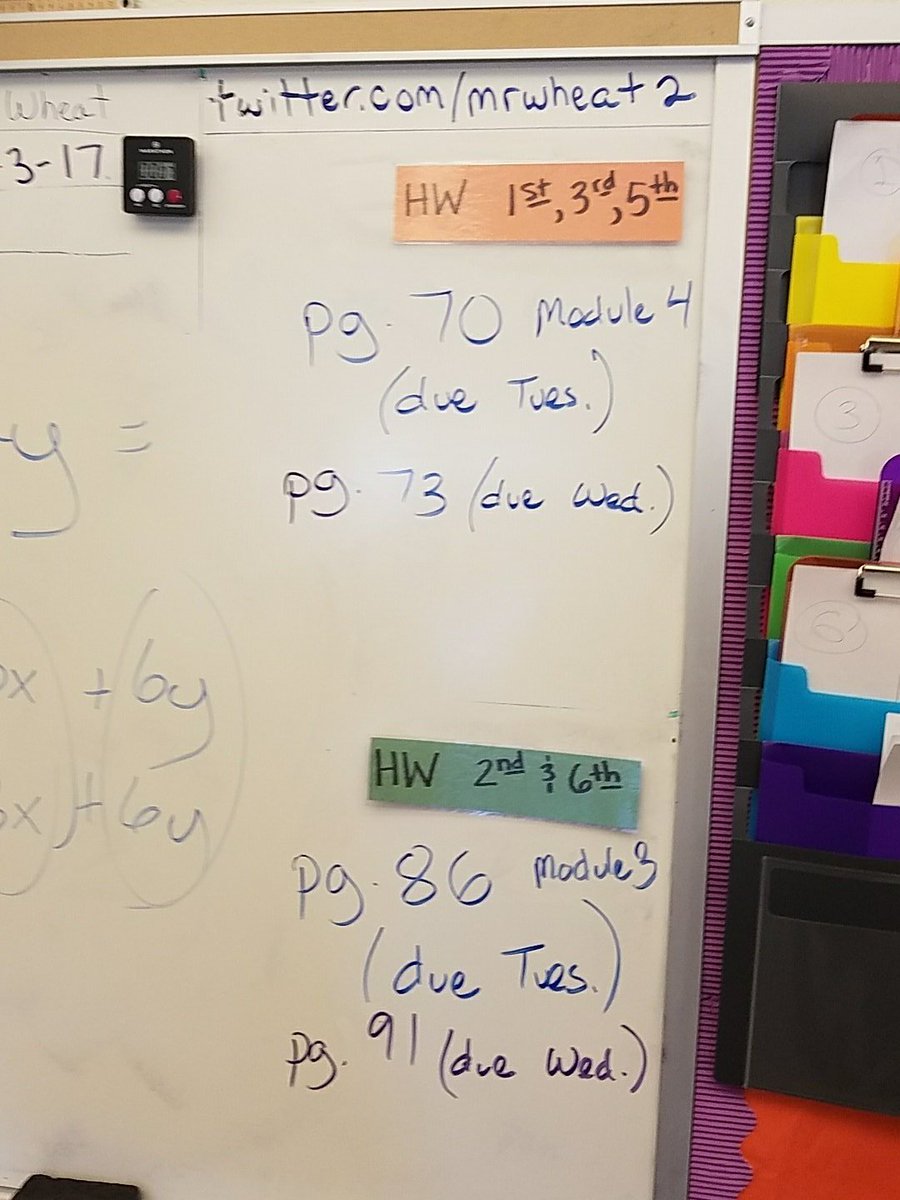 Wheat
twitter.com/mrwheat2
3-17
HW 1st, 3rd, 5th
pg. 70 Module 4
(due Tues.)
y =
pg. 73 (due Wed.)
x + 6y
x) + 6y
HW 2nd & 6th
pg. 86 Module 3
(due Tues.)
pg. 91 (due Wed.)
1
3
6